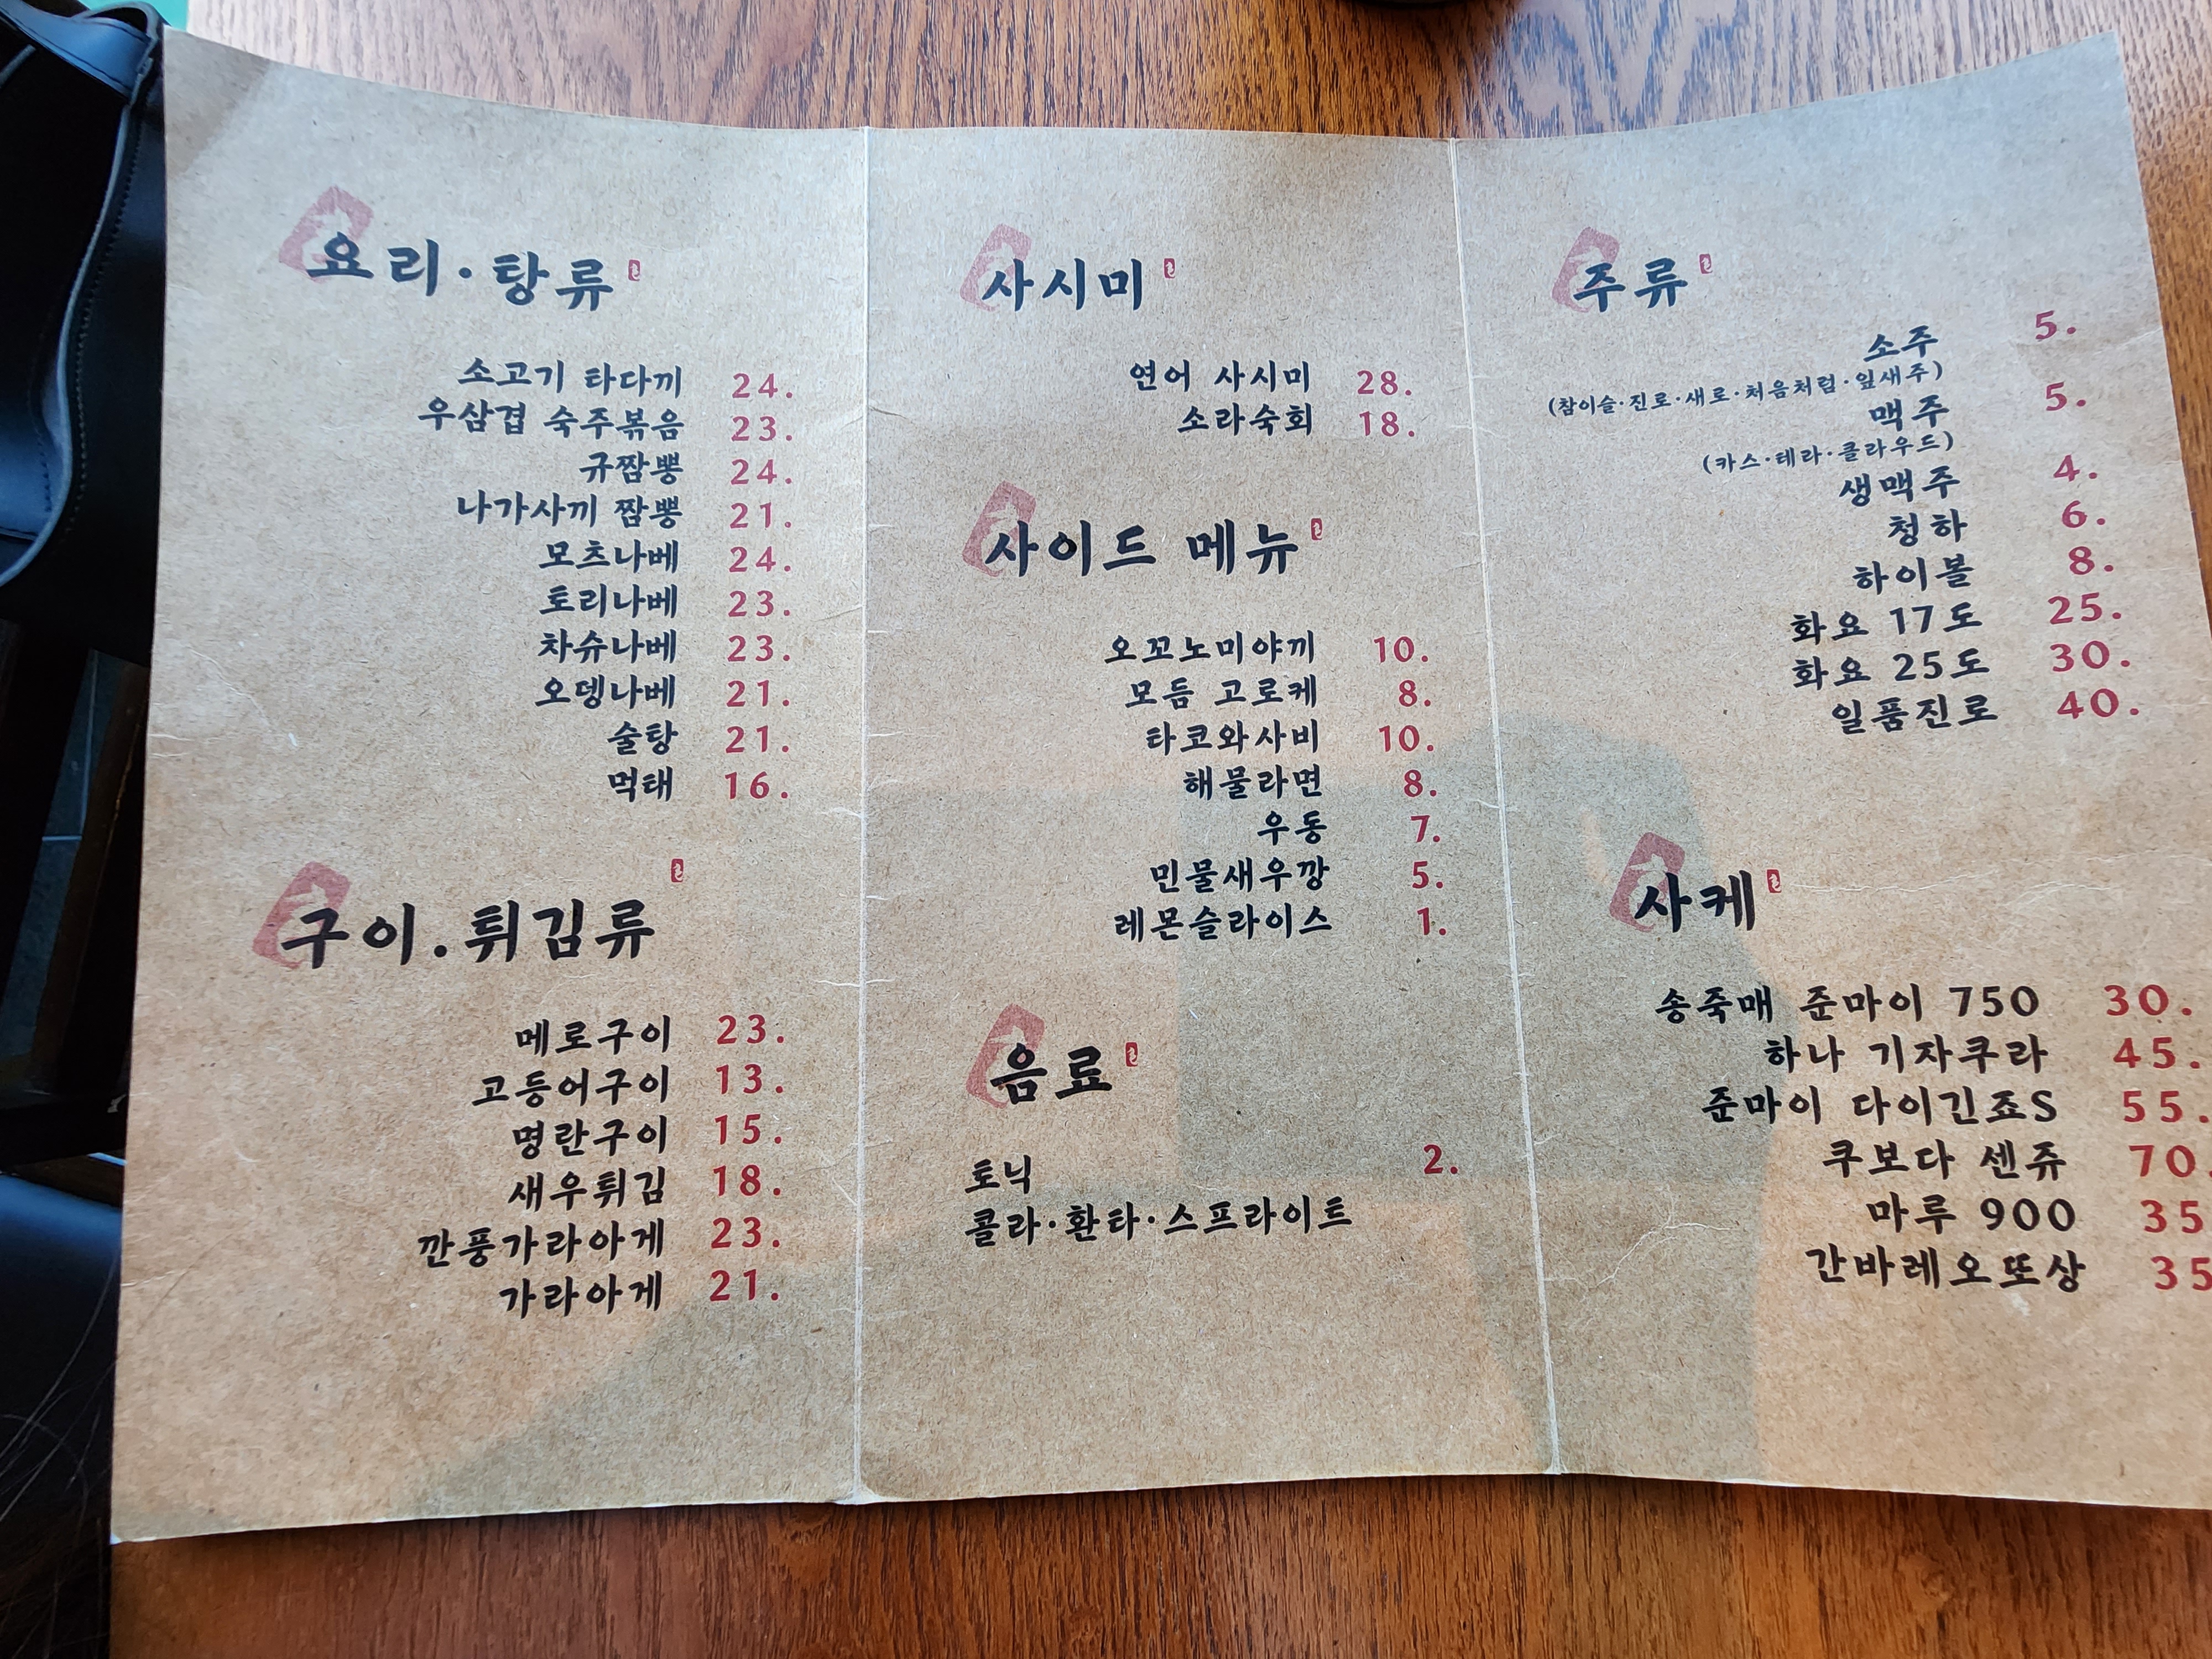 요리·탕류
소고기 타다끼 24.
우삼겹 숙주볶음 23.
규짬뽕 24.
나가사끼 짬뽕 21.
모츠나베 24.
토리나베 23.
차슈나베 23.
오뎅나베 21.
술탕 21.
먹태 16.
구이.튀김류
메로구이 23.
고등어구이 13.
명란구이 15.
새우튀김 18.
깐풍가라아게 23.
가라아게 21.
사시미
연어 사시미 28.
소라숙회 18.
사이드 메뉴
오꼬노미야끼 10.
모듬 고로케 8.
타코와사비 10.
해물라면 8.
우동 7.
민물새우깡 5.
레몬슬라이스 1.
음료
토닉 2.
콜라·환타·스프라이트
주류
소주 5.
(참이슬·진로·새로·처음처럼·잎새주)
맥주 5.
(카스·테라·클라우드)
생맥주 4.
청하 6.
하이볼 8.
화요 17도 25.
화요 25도 30.
일품진로 40.
사케
송죽매 준마이 750 30.
하나 기자쿠라 45.
준마이 다이긴죠S 55.
쿠보다 센쥬 70.
마루 900 35
간바레오또상 35